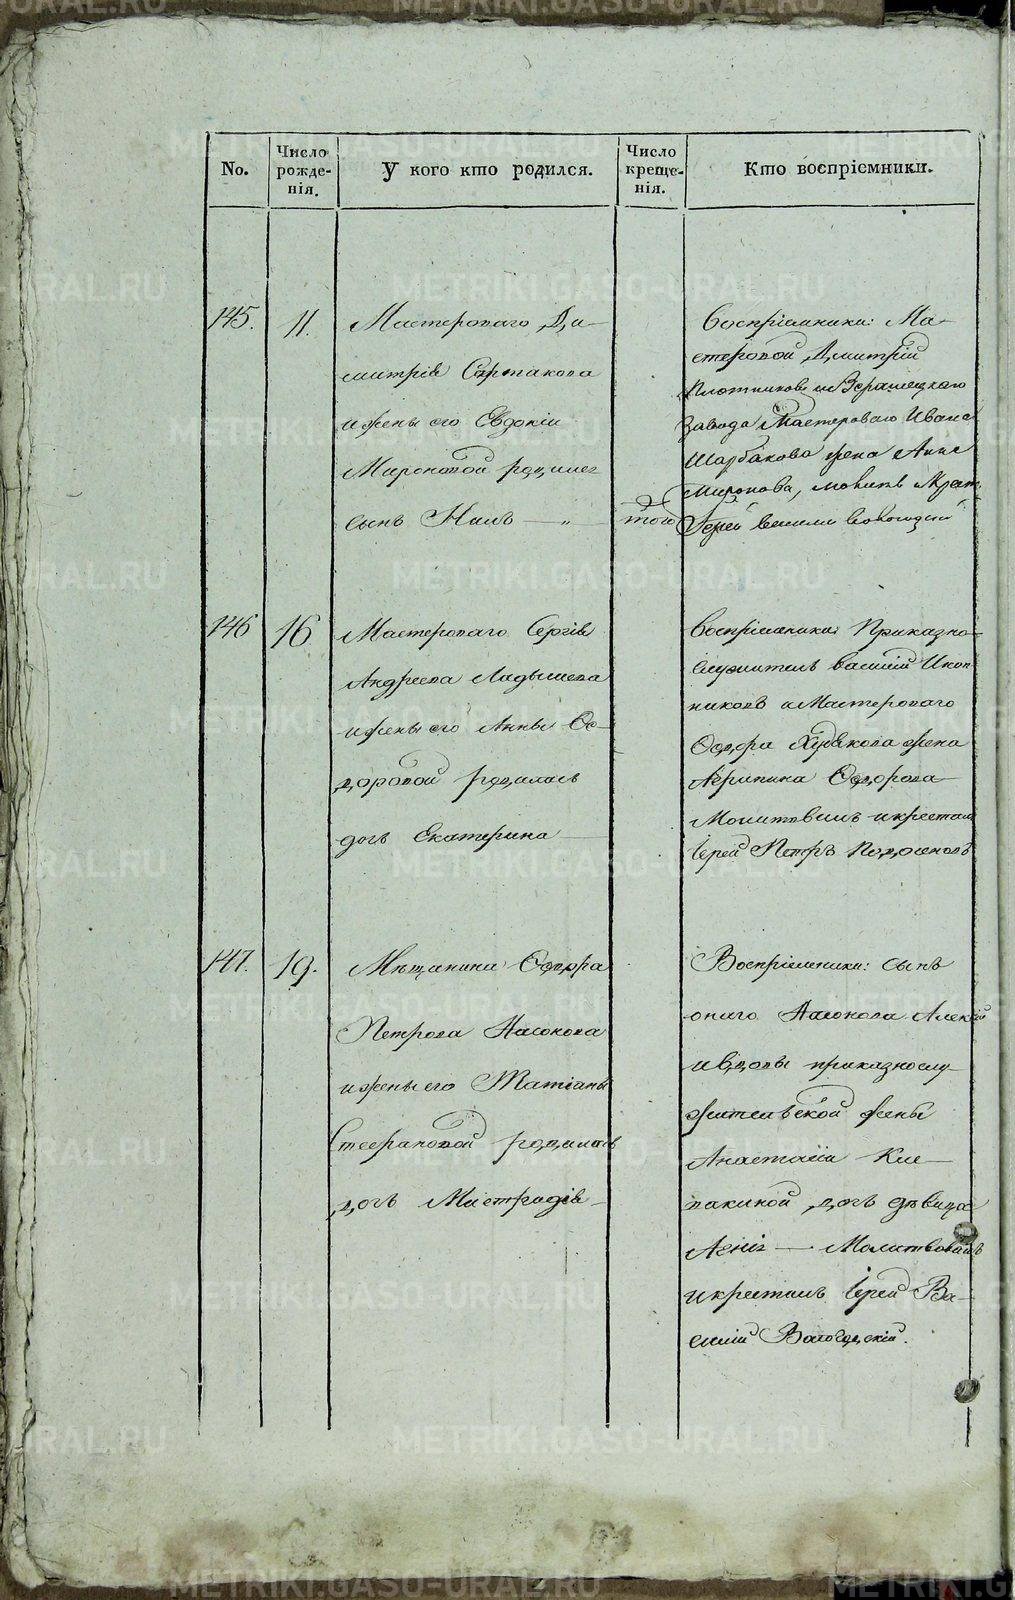 No.
Число рожде-нія.
У кого кто родился.
Число креще-нія.
Кто воспріемники.
145.
11.
Мастероваго Ди-
митрія Сартакова
и жены его Евдокіи
Мироновой родился
сынъ Наумъ — „ —
того
Воспріемники: Ма-
стеровой Дмитрій
Плотниковъ и Верхъисецкаго
завода Мастероваго Ивана
Шарбакова жена Анна
Миронова, молитв. и Крест.
Іерей Василій Вологодскій
146
16
Мастероваго Сергія
Андреева Ладышева
и жены его Анны Ѳе-
доровой родилась
дочь Екатерина —
Воспріемники: Приказно-
служитель Василій Икон
никовъ и Мастероваго
Ѳедора Худякова жена
Агрипина Ѳедорова
Молитвилъ и крестилъ
Іерей Петръ
147.
19.
Мѣщанина Ѳедора
Петрова Насонова
и жены его Татіаны
Стефановой родилась
дочь
Воспріемники: сынъ
онаго Насонова Алексѣй
и вдовы приказнослу-
жительской жены
Анастасіи Кле-
пакиной дочь дѣвица
Агнія — Молитвовалъ
и крестилъ Іерей Ва-
силій Вологодскій.
METRIKI.GASO-URAL.RU